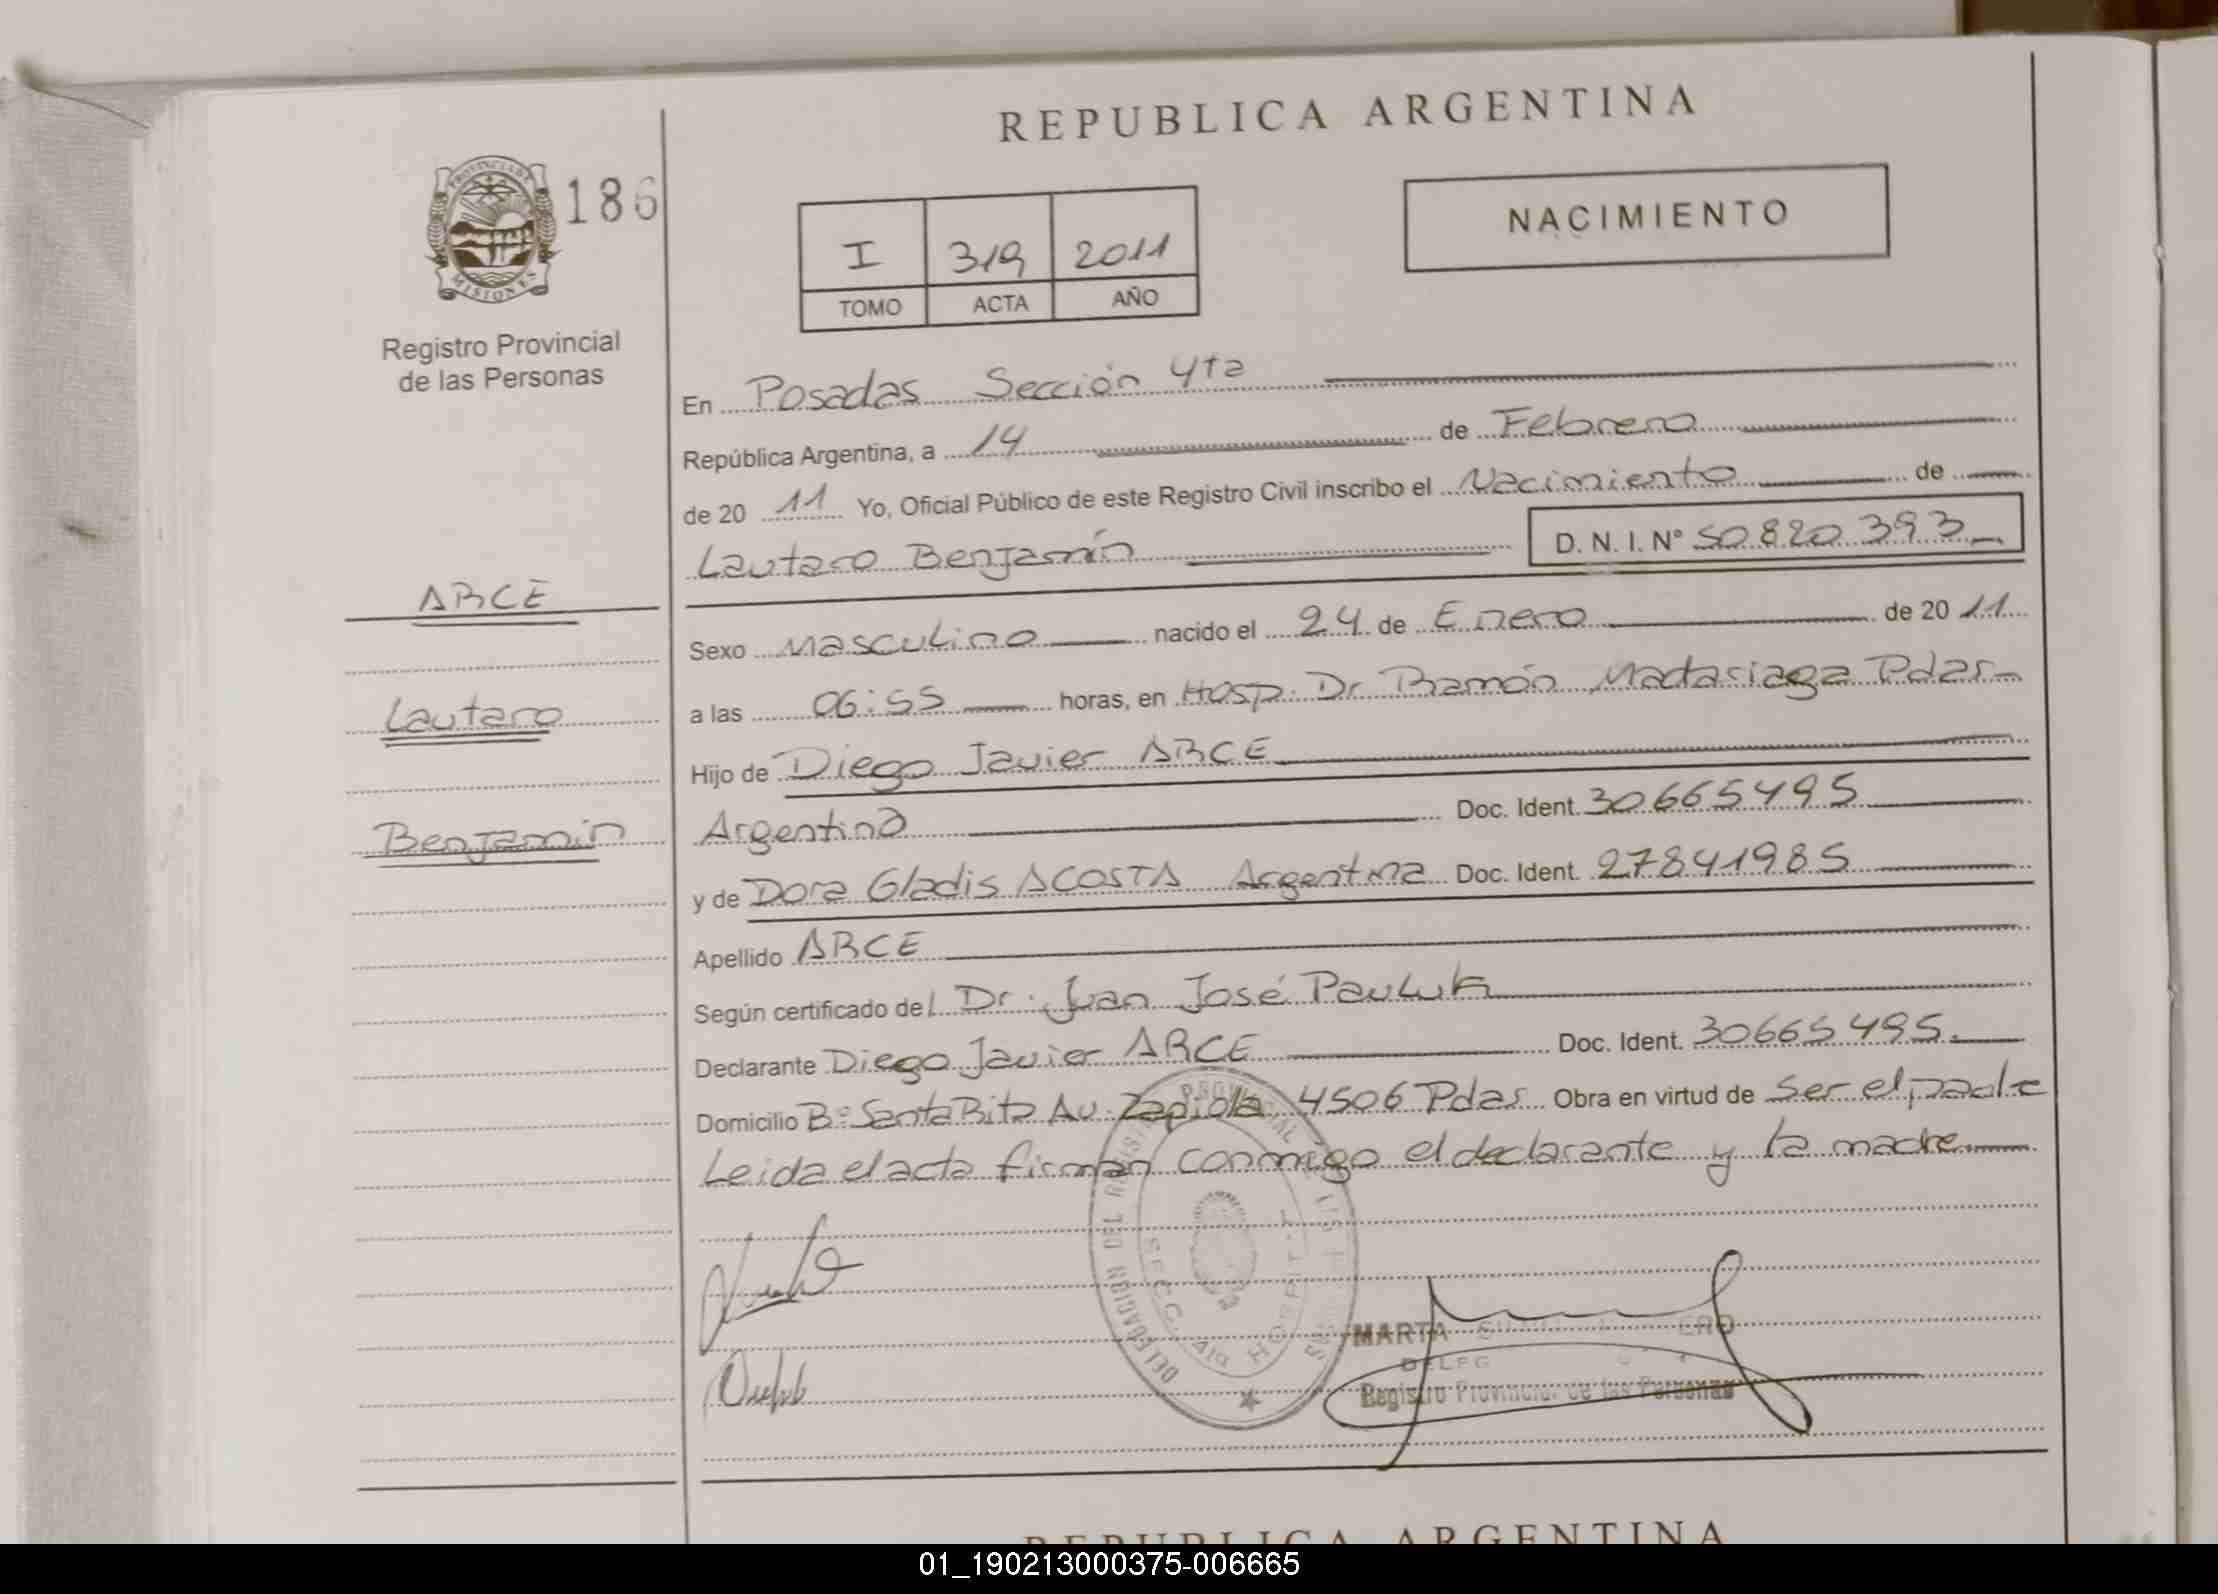 REPUBLICA ARGENTINA
PROVINCIA DE MISIONES
186
NACIMIENTO
I 319 2011
TOMO ACTA AÑO
Registro Provincial
de las Personas
En Posadas Sección 4ta
República Argentina, a 14 de Febrero
de 20 11 Yo, Oficial Público de este Registro Civil inscribo el Nacimiento de
Lautaro Benjamín D. N. I. N° 50.820.393
ARCE
Sexo Masculino nacido el 24 de Enero de 20 11
Lautaro
a las 06:55 horas, en Hosp. Dr Ramón Madariaga Pdas
Hijo de Diego Javier ARCE
Benjamín
Argentino Doc. Ident. 30665495
y de Dora Gladis ACOSTA Argentina Doc. Ident. 27841985
Apellido ARCE
Según certificado del Dr. Juan José Pauluk
Declarante Diego Javier ARCE Doc. Ident. 30665495
Domicilio B° Santa Rita Av. Zapiola 4506 Pdas Obra en virtud de ser el padre
Leida el acta firman conmigo el declarante y la madre
DELEGACION DEL REGISTRO PROVINCIAL DE LAS PERSONAS
SECC. 4ta HOSPITAL
MARTA
DELEG
Registro Provincial de las Personas
REPUBLICA ARGENTINA
01_190213000375-006665